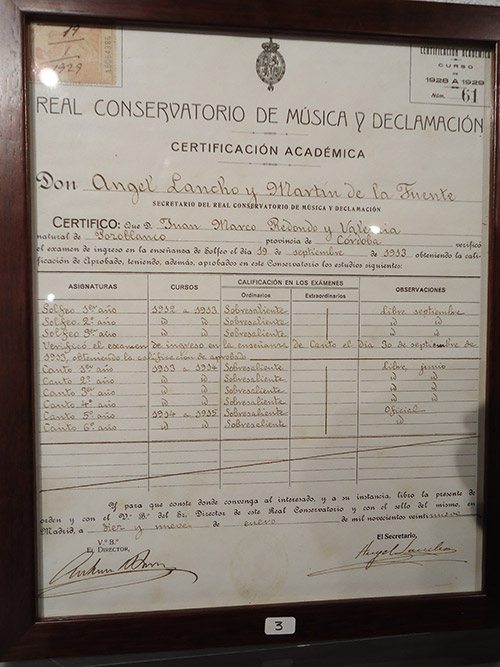 19
1
1929
A6064285
CERTIFICACIÓN ACADÉMICA
CURSO
DE
1928 A 1929
Núm. 61
REAL CONSERVATORIO DE MÚSICA Y DECLAMACIÓN
CERTIFICACIÓN ACADÉMICA
Don Angel Lancho y Martin de la Fuente
SECRETARIO DEL REAL CONSERVATORIO DE MÚSICA Y DECLAMACIÓN
CERTIFICO: Que D. Juan Marco Redondo y Valencia
natural de Pozoblanco provincia de Córdoba verificó
el examen de ingreso en la enseñanza de Solfeo el día 19 de septiembre de 1913 obteniendo la cali-
ficación de Aprobado, teniendo, además, aprobados en este Conservatorio los estudios siguientes:
ASIGNATURAS CURSOS CALIFICACIÓN EN LOS EXÁMENES OBSERVACIONES
Ordinarios Extraordinarios
Solfeo 1er año 1912 a 1913 Sobresaliente Libre septiembre
Solfeo 2º año id id Sobresaliente id id
Solfeo 3er año id id Sobresaliente id id
Verificó el examen de ingreso en la enseñanza de Canto el día 30 de septiembre de
1913, obteniendo la calificación de aprobado
Canto 1er año 1913 a 1914 Sobresaliente Libre junio
Canto 2º año id id Sobresaliente id id
Canto 3er año id id Sobresaliente id id
Canto 4º año id id Sobresaliente id id
Canto 5º año 1914 a 1915 Sobresaliente Oficial
Canto 6º año id id Sobresaliente id
Y para que conste donde convenga al interesado, y a su instancia, libro la presente de
orden y con el V.º B.º del Sr. Director de este Real Conservatorio y con el sello del mismo, en
Madrid, a diez y nueve de enero de mil novecientos veintinueve
V.º B.º
EL DIRECTOR,
El Secretario,
Angel Lancho
3